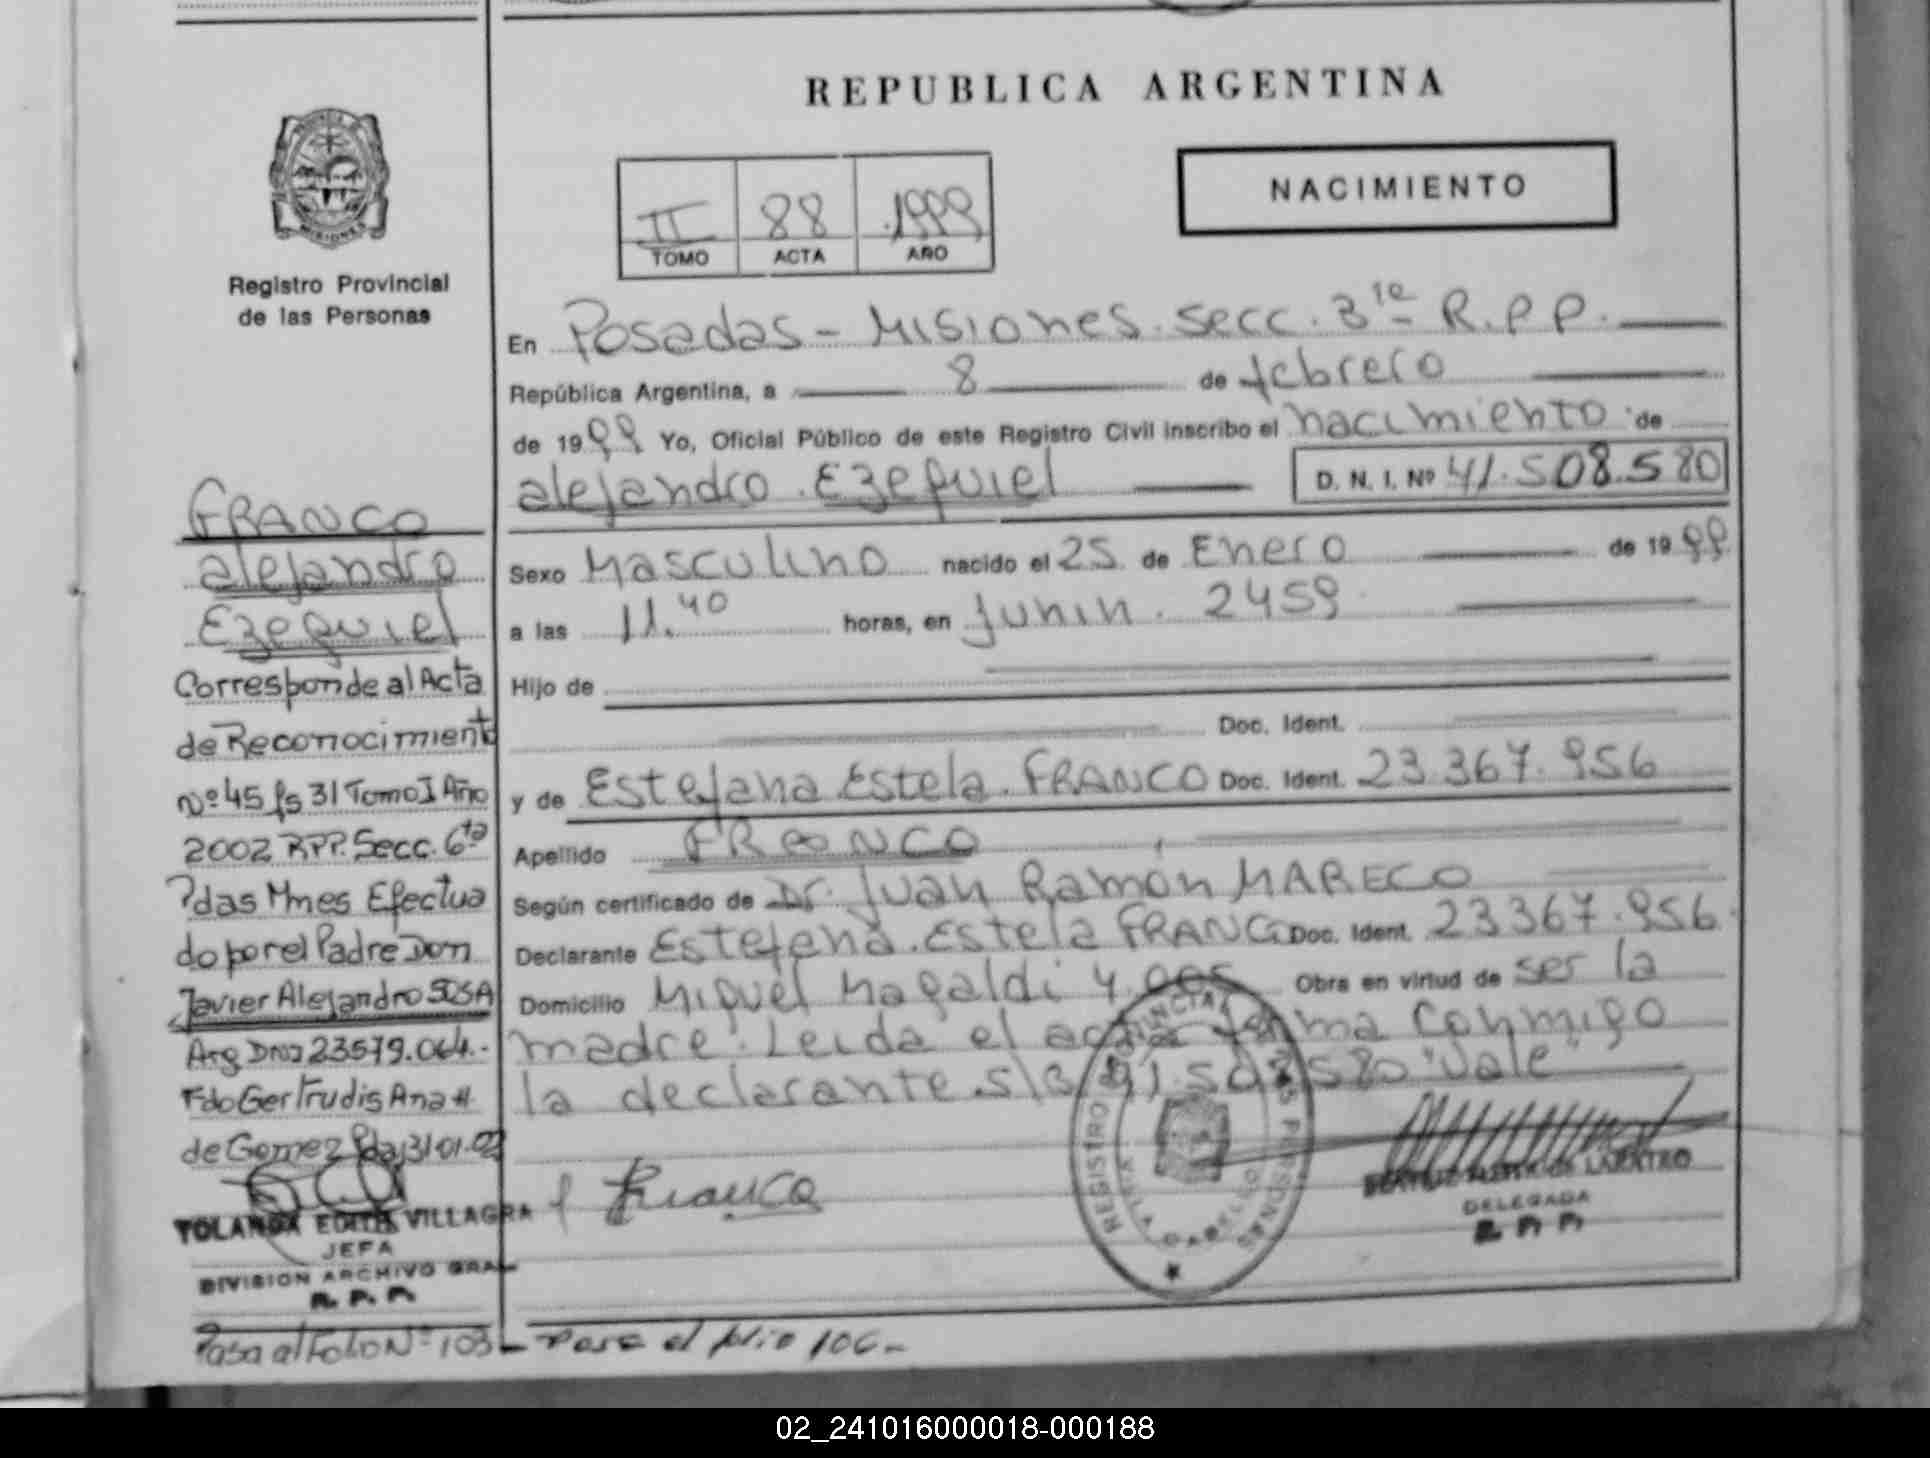 REPUBLICA ARGENTINA
PROVINCIA DE
MISIONES
Registro Provincial
de las Personas
NACIMIENTO
II 88 1999
TOMO ACTA AÑO
En Posadas - Misiones. Secc. 3ra R.P.P.
República Argentina, a 8 de febrero
de 1999 Yo, Oficial Público de este Registro Civil inscribo el nacimiento de
alejandro Ezequiel D. N. I. Nº 41.508.580
Sexo Masculino nacido el 25 de Enero de 1999
a las 11.40 horas, en Junin. 2459
Hijo de
Doc. Ident.
y de Estefana Estela. FRANCO Doc. Ident. 23.367.956
Apellido FRANCO
Según certificado de Dr. Juan Ramón MARECO
Declarante Estefana. Estela FRANCO Doc. Ident. 23367.956
Domicilio Miguel Magaldi 4.005 Obra en virtud de ser la
madre. Leida el acta firma conmigo
la declarante. S/B 41.508.580 "Vale"
FRANCO
alejandro
Ezequiel
Corresponde al Acta
de Reconocimiento
Nº 45 fs 31 Tomo I Año
2002 RPP. Secc. 6ta
Pdas Mnes Efectua
do por el Padre Don
Javier Alejandro SOSA
Arg DNI 23579.064.-
Fdo Gertrudis Ana H.
de Gomez Pdas 31.01.02
YOLANDA EDITH VILLAGRA
JEFA
DIVISION ARCHIVO GRAL
R. P. P.
Franco
REGISTRO PROVINCIAL DE LAS PERSONAS
VILLA CABELLO
DELEGADA
R. P. P.
Pasa al Folio Nº 103
Pasa al folio 106.-
02_241016000018-000188